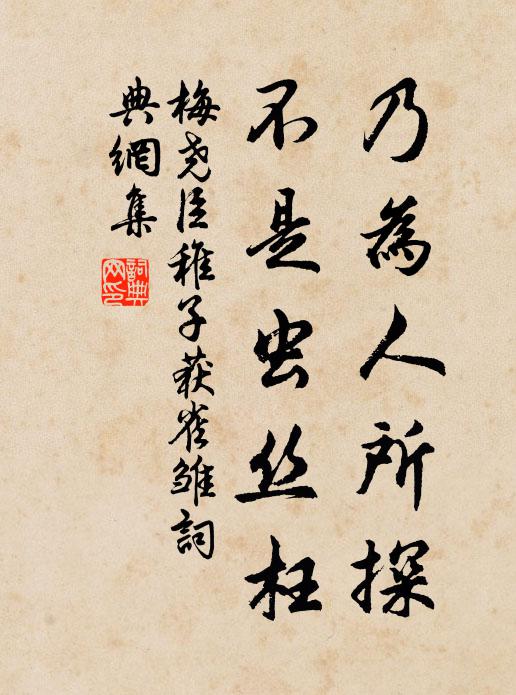 乃為人所探
不是虫丝枉
梅尧臣稚子获雀雏詞
典網集
詞典网印